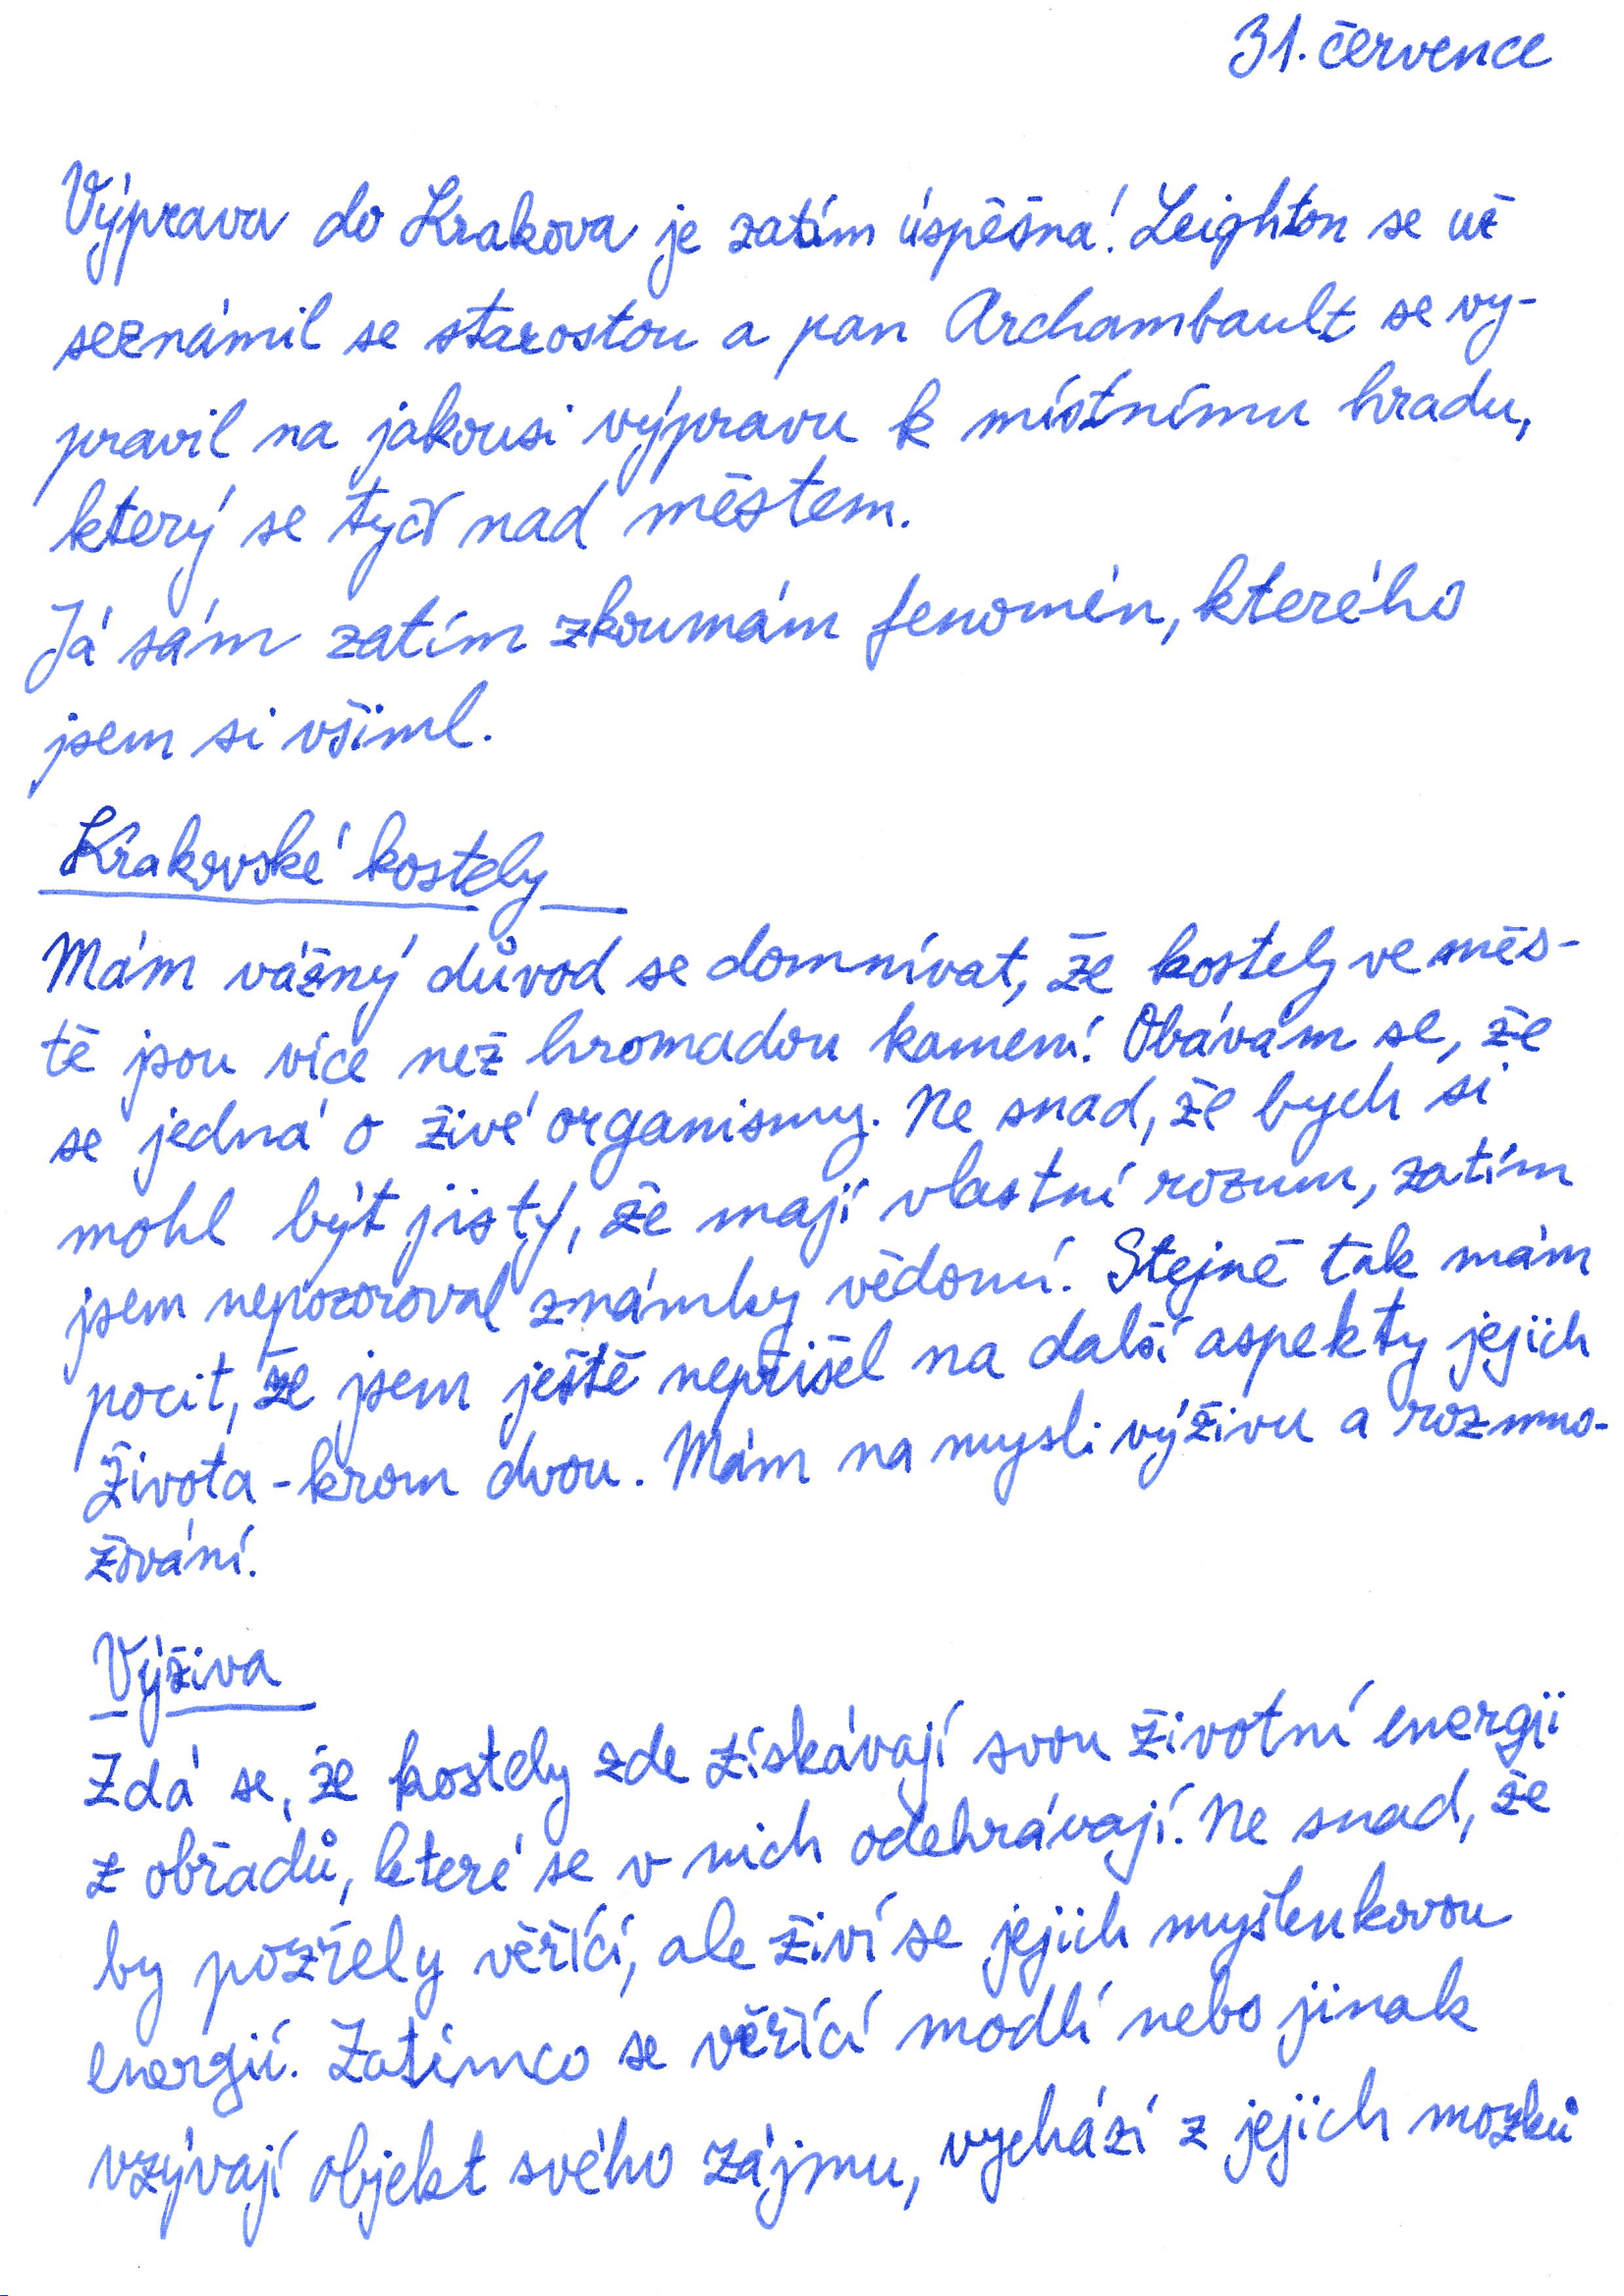 31. července
Výprava do Krakova je zatím úspěšná! Leighton se už
seznámil se starostou a pan Archambault se vy-
pravil na jakousi výpravu k místnímu hradu,
který se tyčí nad městem.
Já sám zatím zkoumám fenomén, kterého
jsem si všiml.
Krakovské kostely
Mám vážný důvod se domnívat, že kostely ve měs-
tě jsou více než hromadou kamení! Obávám se, že
se jedná o živé organismy. Ne snad, že bych si
mohl být jistý, že mají vlastní rozum, zatím
jsem nepozoroval známky vědomí. Stejně tak mám
pocit, že jsem ještě nepřišel na další aspekty jejich
života - krom dvou. Mám na mysli výživu a rozmno-
žování.
Výživa
Zdá se, že kostely zde získávají svou životní energii
z obřadů, které se v nich odehrávají. Ne snad, že
by pozřely věřící, ale živí se jejich myšlenkovou
energií. Zatímco se věřící modlí nebo jinak
vzývají objekt svého zájmu, vychází z jejich mozků